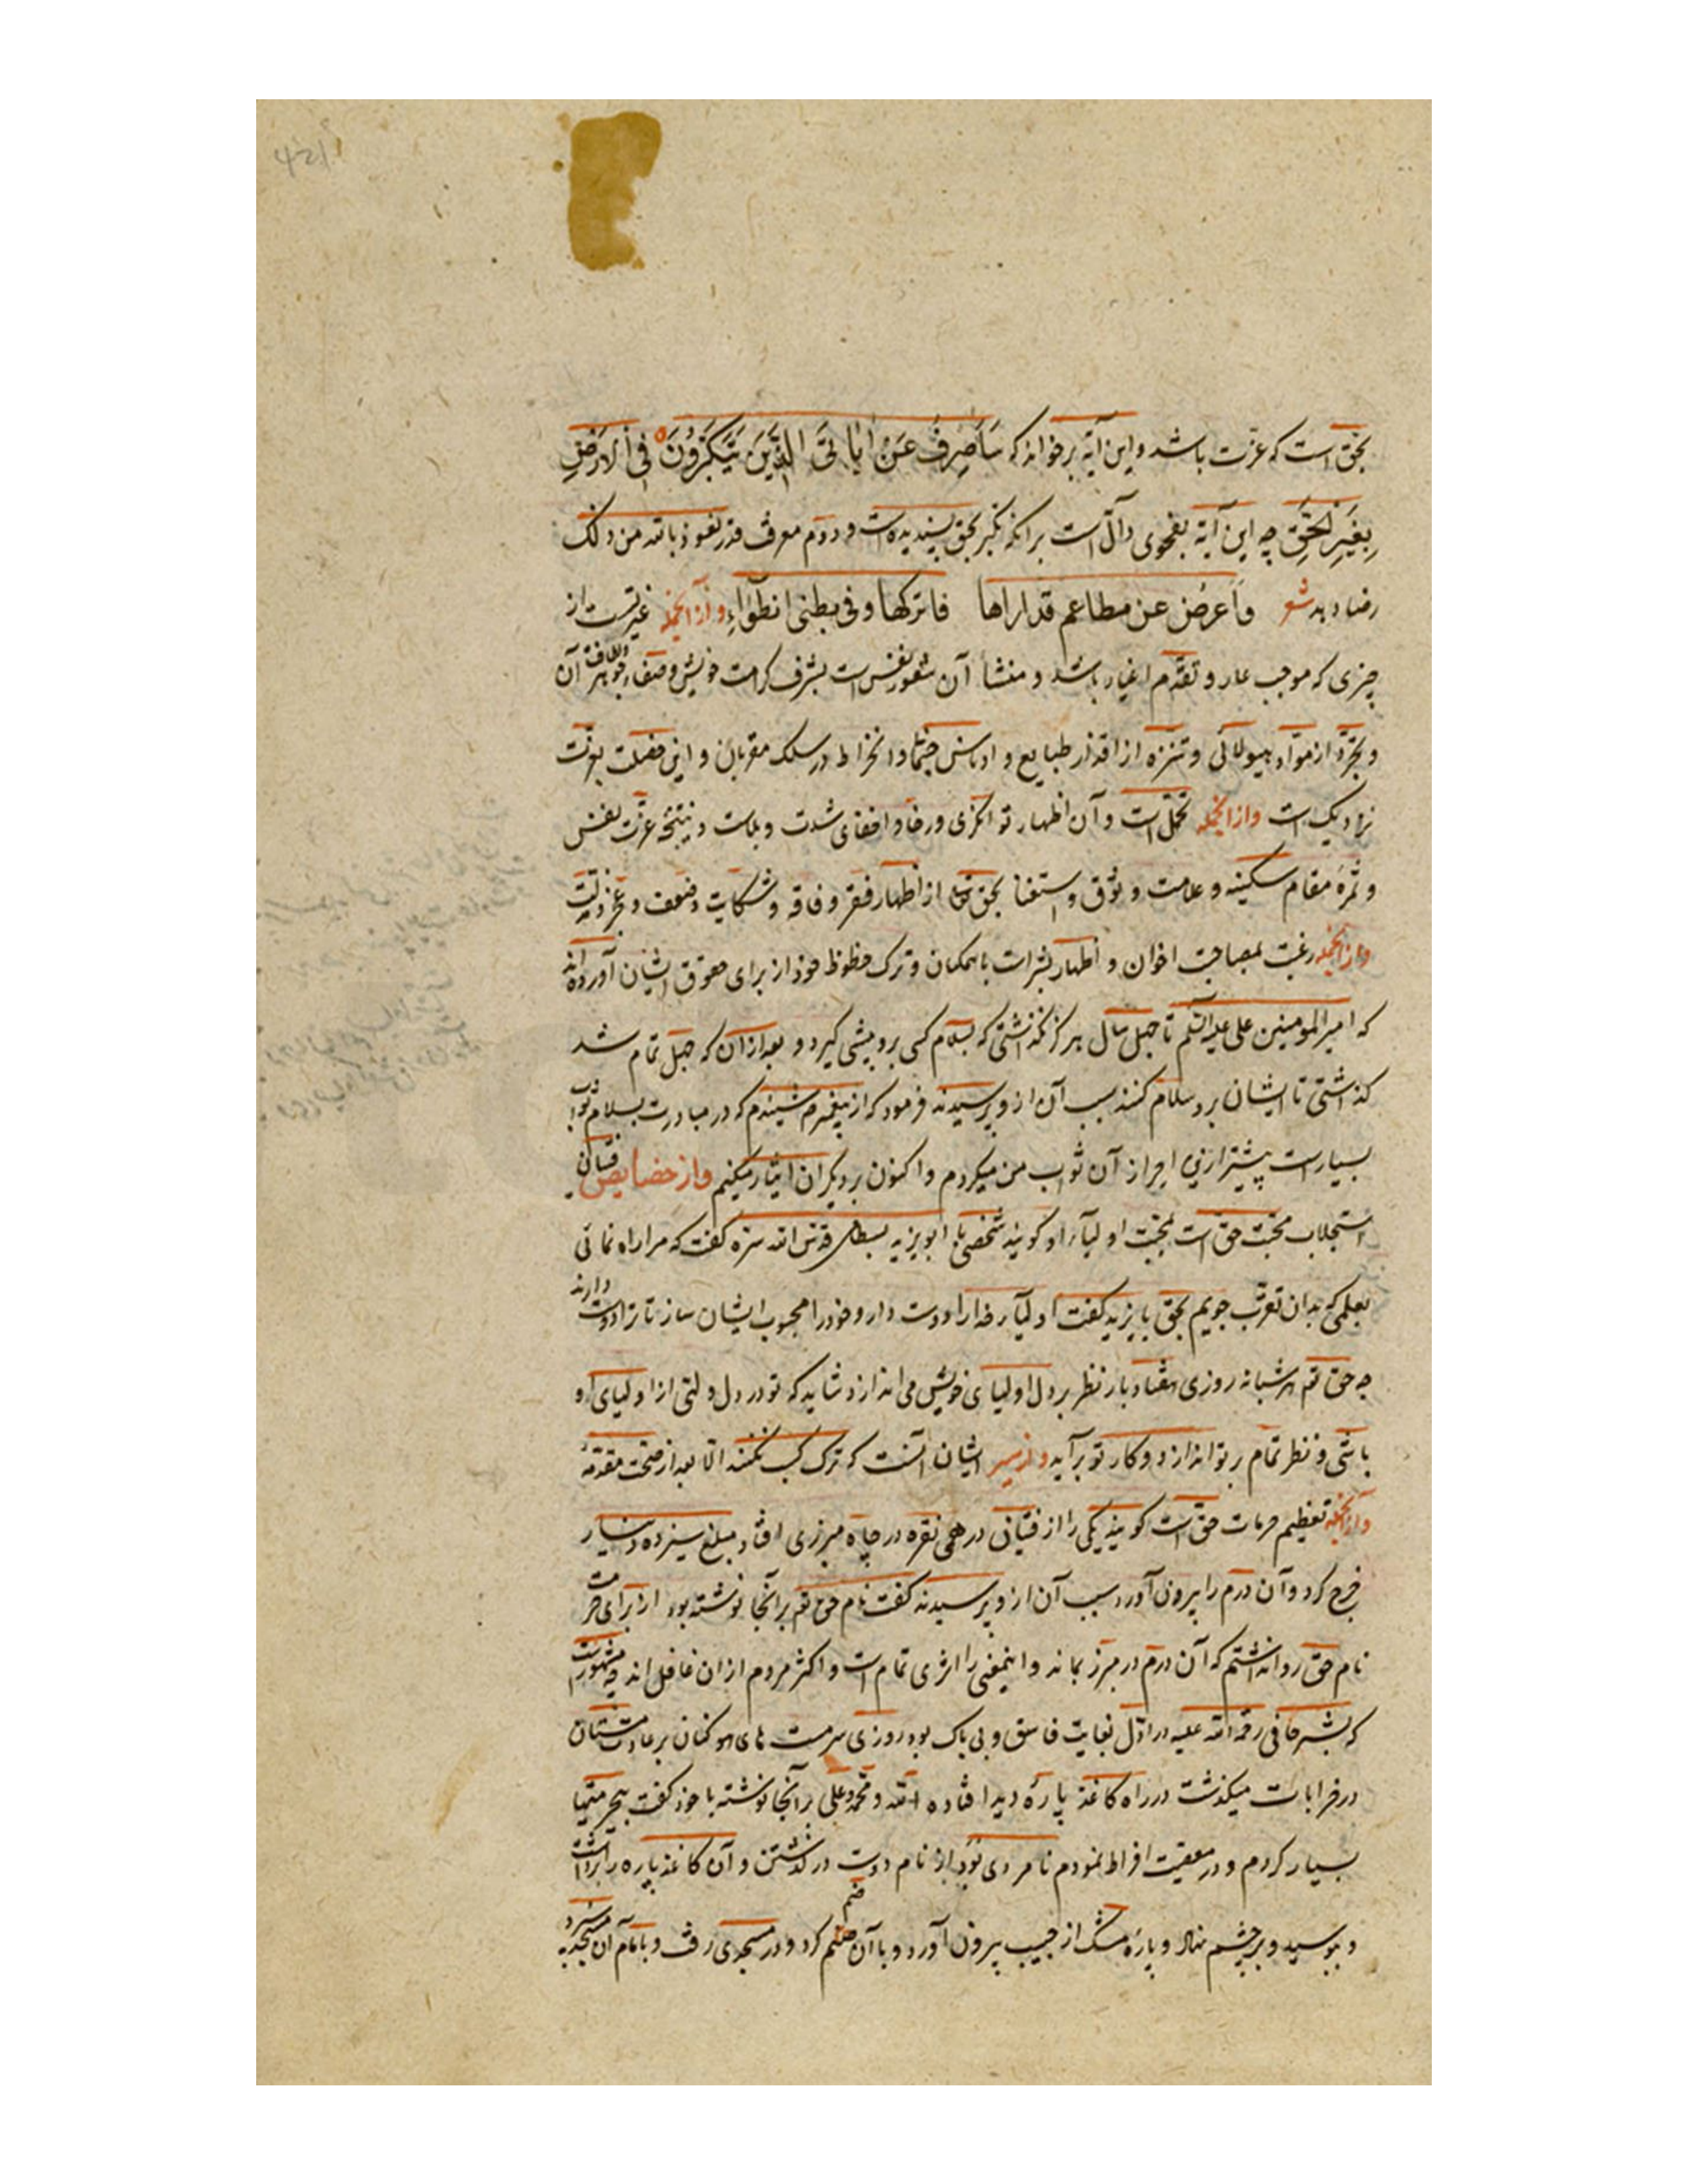 بحق است که عزت باشد و این آیه برخواند که سَأَصْرِفُ عَنْ اٰیَاتِیَ الَّذِینَ یَتَکَبَّرُونَ فِی الْاَرْضِ
بِغَیْرِ الْحَقِّ چه این آیه بفحوی دالّ است بر آنکه تکبر بحق پسندیده است و دوم معرفت قدر نعوذ بالله من ذلک
رضا دهد شعر وَاَعرضُ عن مطاعم قد اراها فاترکها و فی بطنی انطوَاءِ و از آنجمله غیرتست از
چیزی که موجب عار و تقدّم اغیار باشد و منشأ آن شعور نفس است بشرف کرامت خویش و صفاء جوهر و لطافت آن
و تجرّد از موّاد هیولائی و تنزه از اقذار طبایع و ادناس و انخراط در سلک مقربان و این خصلت بعزت
نزدیک است و از آنجمله تحمّل است و آن اظهار توانگری و رفاه و اخفای شدت و بلاست و نتیجه عزّت نفس
و ثمرهٔ مقام سکینه و علامت وثوق و استغنا بحق از اظهار فقر و فاقه و شکایت و ضعف و عجز و ذلت
و از آنجمله رغبت بمصاحبت اخوان و اظهار بشرات با همکنان و ترک حظوظ خود از برای حقوق ایشان آورده اند
که امیرالمومنین علی علیه السّلم تا چهل سال هرگز نگذاشتی که بسلام کسی برو پیشی گیرد و بعد از آن که چهل تمام شد
گذاشتی تا ایشان برو سلام کنند سبب آن ازو پرسیدند فرمود که از پیغمبر شنیدم که در مبادرت بسلام ثواب
بسیارست پیشتر ازین احراز آن ثواب من میکردم و اکنون بر دیگران ایثار میکنم و از خصایص فتیان
استجلاب محبّت حق است بمحبّت اولیآء او گویند شخصی با ابویزید بسطامی قدّس الله سرّه گفت که مرا راه نمائی
بعلمی که بدان تقرّب جویم بحق بایزید گفت اولیآء خدا را دوست دار و خود را محبوب ایشان ساز تا ترا دوست دارند
چه حق تع هر شبانه روزی هفتاد بار نظر بر دل اولیای خویش می اندازد شاید که تو در دل ولئی از اولیای او
باشی و نظر تمام بر تو اندازد و کار تو برآید و از سیر ایشان آنست که ترک کسب نکنند الّا بعد از صحّت مقدمه
و از آنجمله تعظیم حرمات حق است گویند یکی را از فتیان درهمی نقره در چاه مبرزی افتاد مبلغ سیزده دینار
خرج کرد و آن درم را بیرون آورد سبب آن ازو پرسیدند گفت نام حق تع بر آنجا نوشته بود از برای حرمت
نام حق روا نداشتم که آن درم در مبرز بماند و اینمعنی را اثری تمام است و اکثر مردم ازان غافل اند چه مشهورست
که بشر حافی رحمة الله علیه در اوّل بغایت فاسق و بی باک بود روزی سرمست های هو کنان بر عادت مستان
در خرابات میگذشت در راه کاغذ پارهٔ دید افتاده الله و محمّد و علی بر آنجا نوشته با خود گفت
بسیار کردم و در معصیت افراط نمودم نامردی بُوَد از نام دوست در گذشتن و آن کاغذ پاره را برداشت
و ببوسید و بر چشم نهاد و پارهٔ مشک از جیب بیرون آورد و با آن ضم کرد و در مسجدی رفت و بامام آن مسجد سپرد